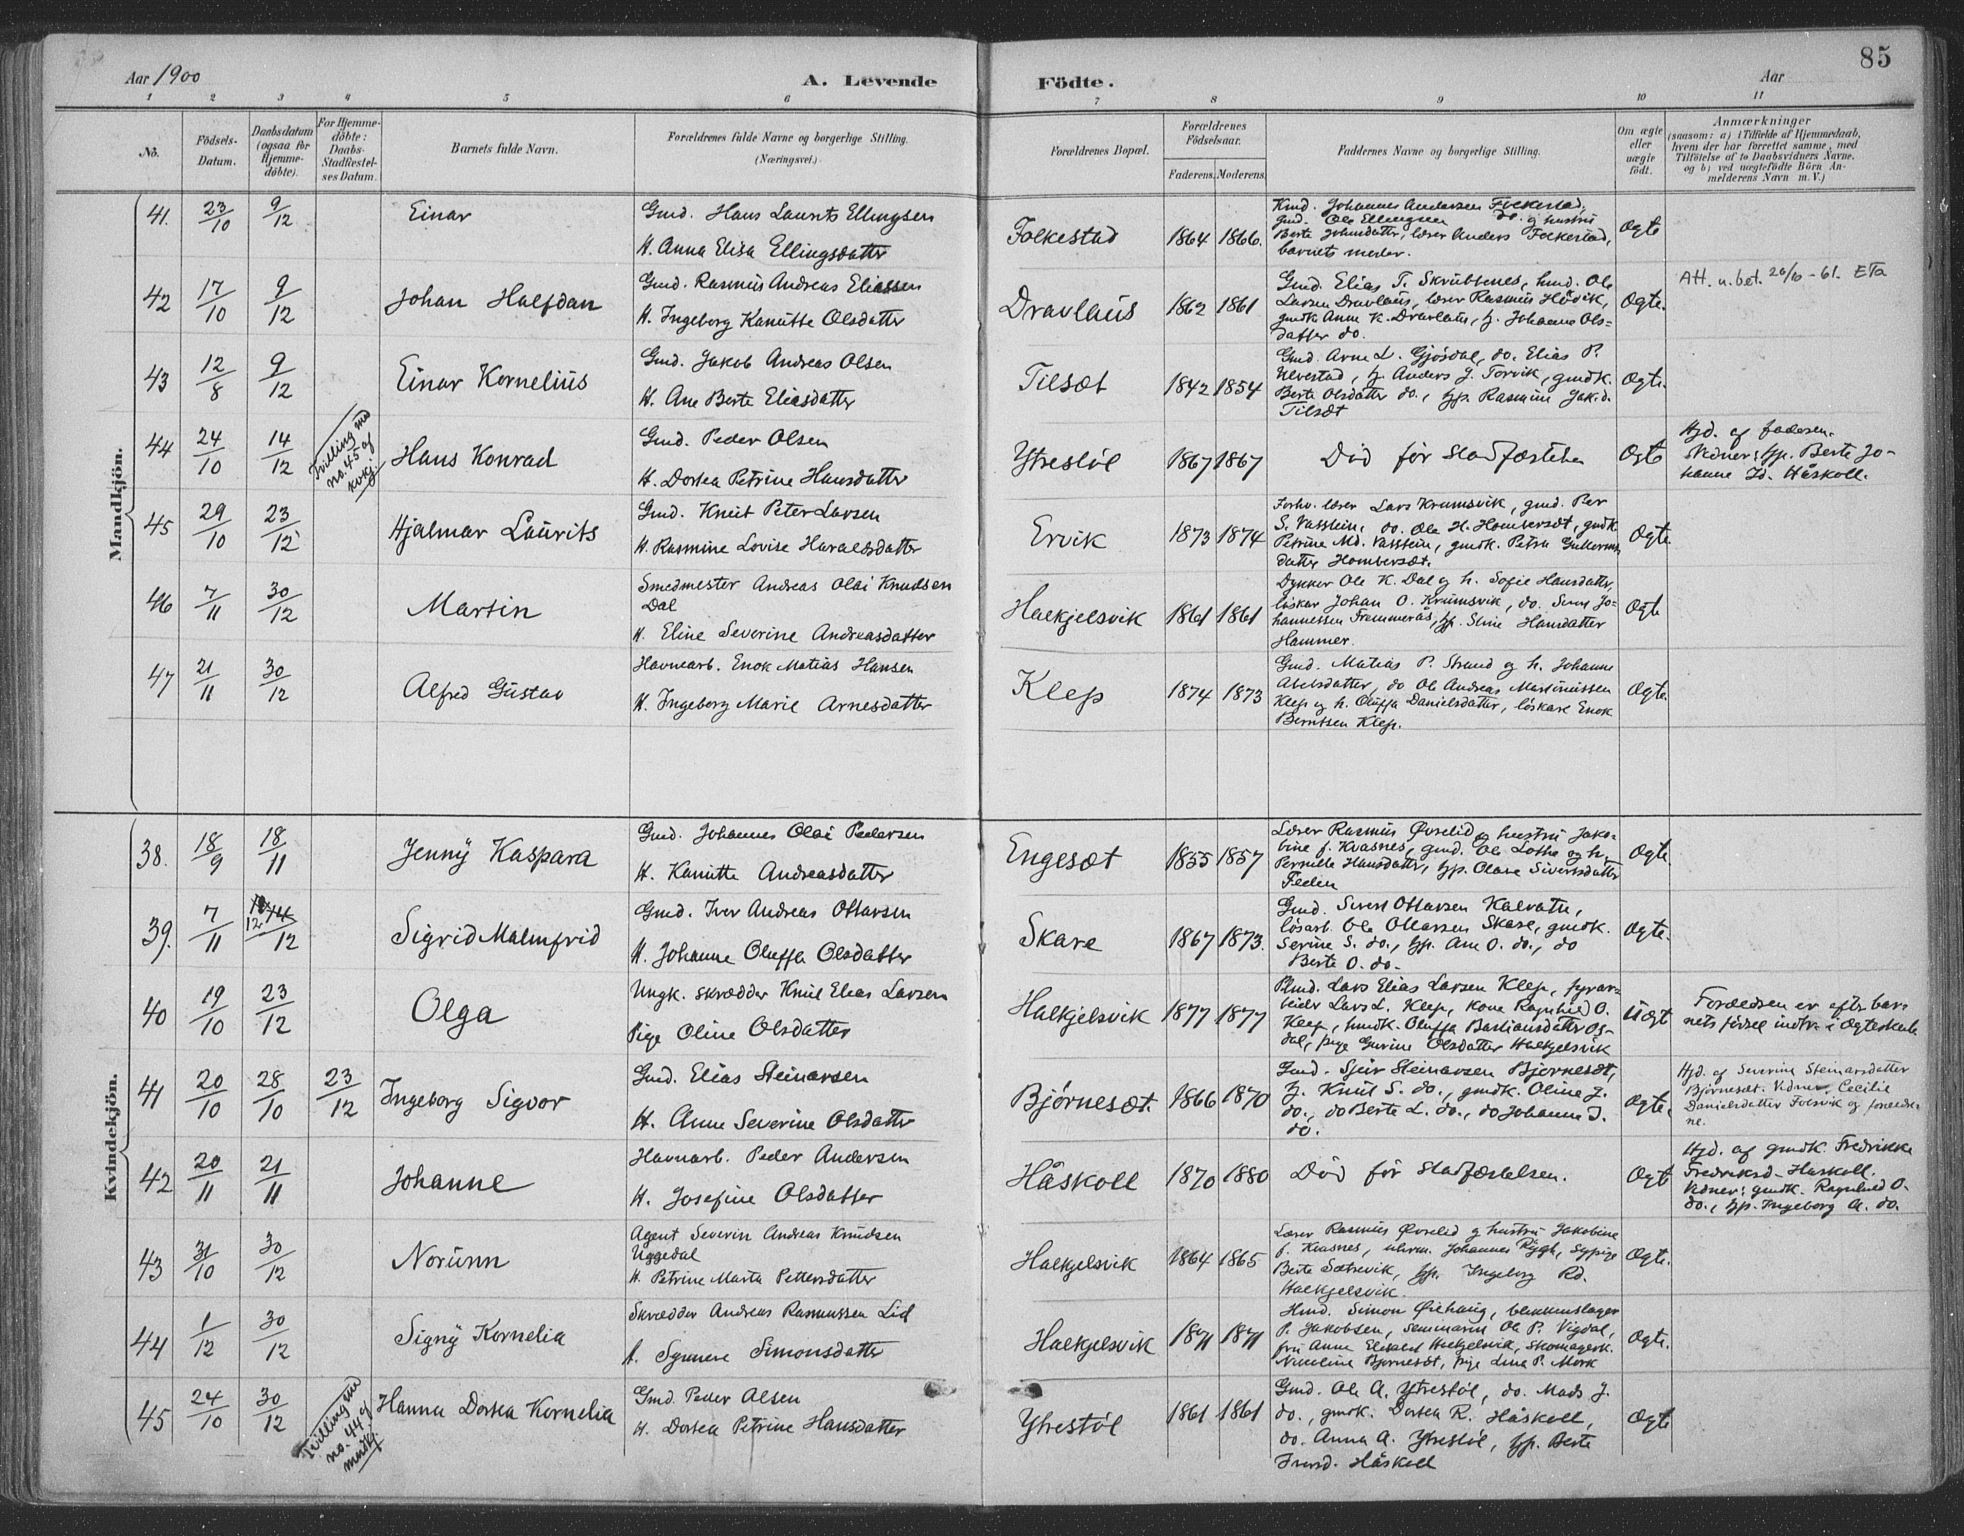 85
Aar 1900
A. Levende Födte.
Aar
1 2 3 4 5 6 7 8 9 10 11
No.
Födsels-Datum.
Daabsdatum (ogsaa for Hjemme-döbte).
For Hjemme-döbte: Daabs-Stadfæstel-ses Datum.
Barnets fulde Navn.
Forældrenes fulde Navne og borgerlige Stilling. (Næringsvei.)
Forældrenes Bopæl.
Forældrenes Födselsaar.
Faderens. Moderens.
Faddernes Navne og borgerlige Stilling.
Om ægte eller uægte födt.
Anmærkninger
(saasom: a) i Tilfælde af Hjemmedaab, hvem der har forrettet samme, med Tilföielse af to Daabsvidners Navne. og b) ved uægtefödte Börn An-melderens Navn m. V.)
Mandkjön.
41. 23/10 9/12 Einar
Gmd. Hans Laurits Ellingsen
H. Anna Elisa Ellingsdatter
Folkestad 1864 1866.
Kmd. Johannes Andersen Folkestad,
gmd. Ole Ellingsen do. og hustru
Berte Johnsdatter, lærer Anders Folkestad,
barnets moder.
Ægte
42 17/10 9/12 Johan Halfdan
Gmd. Rasmus Andreas Eliassen
H. Ingeborg Kanutte Olsdatter
Dravlaus 1862 1861
Gmd. Elias T. Skrubtenes, hmd. Ole
Larsen Dravlaus, lærer Rasmus Håvik,
gmdk Anne K. Dravlaus, tj. Johanne Ols-
datter do.
Ægte.
Att. u. bet. 20/10-61. ETa
43 12/8 9/12 Einar Kornelius
Gmd. Jakob Andreas Olsen
H. Ane Berte Eliasdatter
Tilsæt 1842 1854
Gmd. Arne L. Gjøsdal, do. Elias P.
Ulvestad, tj. Anders J. Torvik, gmdk.
Berte Olsdatter do., tjp. Rasmine Jak.d.
Tilsæt
Ægte.
44 24/10 14/12 Tvilling med no. 45 af kvkj. Hans Konrad
Gmd. Peder Olsen
H. Dortea Petrine Hansdatter
Ytrestøl 1867 1867
Død før Stadfæstelsen
Ægte
Hjd. af faderen.
Vidner: tjp. Berte Jo-
hanne Id. Håskoll.
45 29/10 23/12 Hjalmar Laurits
Gmd. Knut Peter Larsen
H. Rasmine Lovise Haraldsdatter
Ervik 1873 1874
Forhv. lærer Lars Krumsvik, gmd. Per
S. Vatstein, do. Ole H. Homberset, gmdk
Petrine Md. Vatstein, gmdk. Petra Guttorms
datter Homberset.
Ægte
46 7/11 30/12 Martin
Smedmester Andreas Olai Knudsen
Dal
H. Eline Severine Andreasdatter
Halkjelsvik 1861 1861
Dykker Ole K. Dal og h. Sofie Hansdatter,
løskar Johan O. Krumsvik, do. Sivert Jo-
hannessen Fremmerås, tjp. Stine Hansdatter
Hammer.
Ægte
47 21/11 30/12 Alfred Gustav
Havnearb. Enok Matias Hansen
H. Ingeborg Marie Arnesdatter
Klep 1874 1873
Gmd. Matias P. Strand og h. Johanne
Abelsdatter, do Ole Andreas Martinussen
Klep og h. Oluffa Danielsdatter, løskare Enok
Berntsen Klep.
Ægte.
Kvindekjön.
38. 18/9 18/11 Jenny Kaspara
Gmd. Johannes Olai Pedersen
H. Kanutte Andreasdatter
Engesæt 1855 1857
Lærer Rasmus Øvrelid og hustru Jako-
bine f. Kvasnes, gmd. Ole Lothe og h.
Pernille Hansdatter, tjp. Olave Sivertsdatter
Ægte
39. 7/11 12 14/12 Sigrid Malmfrid
Gmd. Iver Andreas Ottarsen
H. Johanne Oluffa Olsdatter
Skare 1867 1873.
Gmd. Sivert Ottarsen Kalvatn,
løsarb. Ole Olearsen Skare, gmdk.
Serine S. do., tjp. Ane O. do., do
Berte O. do.
Ægte.
40 19/10 23/12 Olga
Ungk. skrædder Knut Elias Larsen
Pige Oline Olsdatter
Halkjelsvik 1877 1877
Gmd. Lars Elias Larsen Klep, fyrar-
beider Lars L. Klep, kone Ragnhild O.
Klep, hmdk. Oluffa Bastiansdatter Og-
dal, pige Gurine Olsdatter Halkjelsvik
Uægt
Forældren er efter bar
nets fødsel indtr. i Ægteskab
41 20/10 28/10 23/12 Ingeborg Sigvor
Gmd. Elias Steinarsen
H. Anne Severine Olsdatter
Bjørnesæt. 1866 1870
Gmd. Sjur Steinarsen Bjørnesæt,
tj. Knut S. do., gmdk. Oline J.
do., do Berte L. do., do Johanne I.
do.
Ægte.
Hjd. af Severine Steinarsdatter
Bjørnesæt. Vidner, Cecilie
Danielsdatter Folsvik og forældre-
ne.
42 20/11 21/11 Johanne
Havnarb. Peder Andersen
H. Josefine Olsdatter
Håskoll 1870 1880
Død før Stadfæstelsen.
Ægt
Hjd. af gmdk. Fredrikke
Fredriksd. Håskoll.
Vidner: gmdk. Ragnhild O.
do., tjp. Ingeborg A. do.
43 31/10 30/12 Norunn
Agent Severin Andreas Knudsen
Uggedal
H. Petrine Marta Pettersdatter
Halkjelsvik 1864 1865
Lærer Rasmus Øvrelid og hustru Jakobine
f. Kvasnes, uhrm. Johannes Rygh, sypige
Berte Sætrevik, tjp. Ingeborg Rd.
Halkjelsvik.
Ægte.
44 1/12 30/12 Signy Kornelia
Skrædder Andreas Rasmussen Lid
H. Synnøve Simonsdatter
Halkjelsvik 1871 1871
Hmd. Simon Øiehaug, blikkenslager
P. Jakobsen, seminarist Ole P. Vigdal,
fru Anne Elisabet Halkjelsvik, Skomagerk.
Nicoline Bjørnesæt, pige Lina P. Mork
Ægte.
45 24/10 30/12 Tvilling med no. 44 af mndkj. Hanna Dortea Kornelia
Gmd. Peder Olsen
H. Dortea Petrine Hansdatter
Ytrestøl 1861 1861
Gmd. Ole A. Ytrestøl, do. Mads J.
do., gmdk. Dortea R. Håskoll,
do. Anna A. Ytrestøl, tjp. Berte
Ivarsd. Håskoll
Ægte